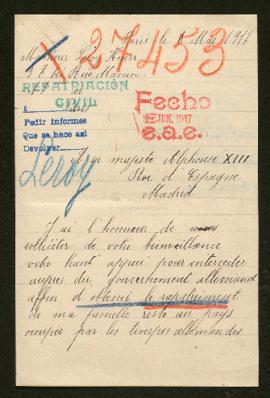 Paris le 8 Mai 1917
27453
Monsieur Leroy
Rue
REPATRIACIÓN
CIVIL
A
Pedir informes
Que se hace así
Devolver
Fecho
2 JUN. 1917
e.a.e.
Leroy
majesté Alphonse XIII
Roi d'Espagne
Madrid
J'ai l'honneur de
solliciter de votre bienveillance
votre haut appui pour intercéder
auprès du gouvernement allemand
affin d'obtenir le rapatriement
de ma famille resté au pays
occupée par les troupes allemandes.